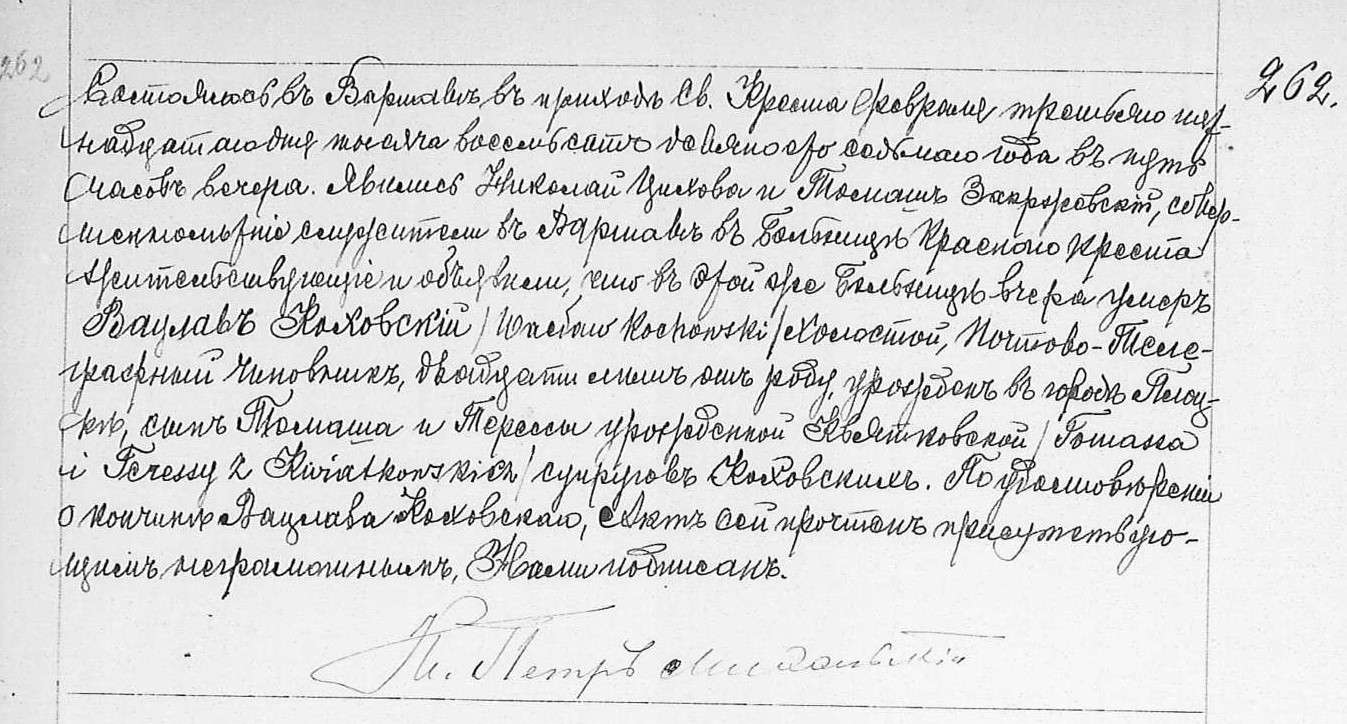 262
262.
Состоялось въ Варшавѣ въ приходѣ Св. Креста Февраля третьяго пят-
надцатаго дня тысяча восемьсотъ девяносто седьмаго года въ пять
часовъ вечера. Явились Николай и Томашъ Закржевскій, совер-
шеннолѣтніе служители въ Варшавѣ въ Больницѣ Краснаго Креста
жительствующіе и объявили, что въ этой же Больницѣ вчера умеръ
Вацлавъ Коховскій /Wacław Kochowski/ холостой, Почтово-Теле-
графный Чиновникъ, двадцати лѣтъ отъ роду, урожденъ въ городѣ Плоц-
кѣ, сынъ Томаша и Терессы урожденной Квятковской /Tomasza
i Teressy z Kwiatkowskich/ супруговъ Коховскихъ. По удостовѣреніи
о кончинѣ Вацлава Коховскаго, Актъ сей прочтенъ присутствую-
щимъ неграмотнымъ, Нами подписанъ.
Кс. Петръ